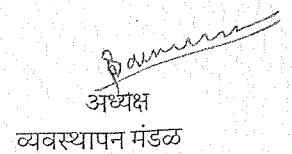 अध्यक्ष
व्यवस्थापन मंडळ